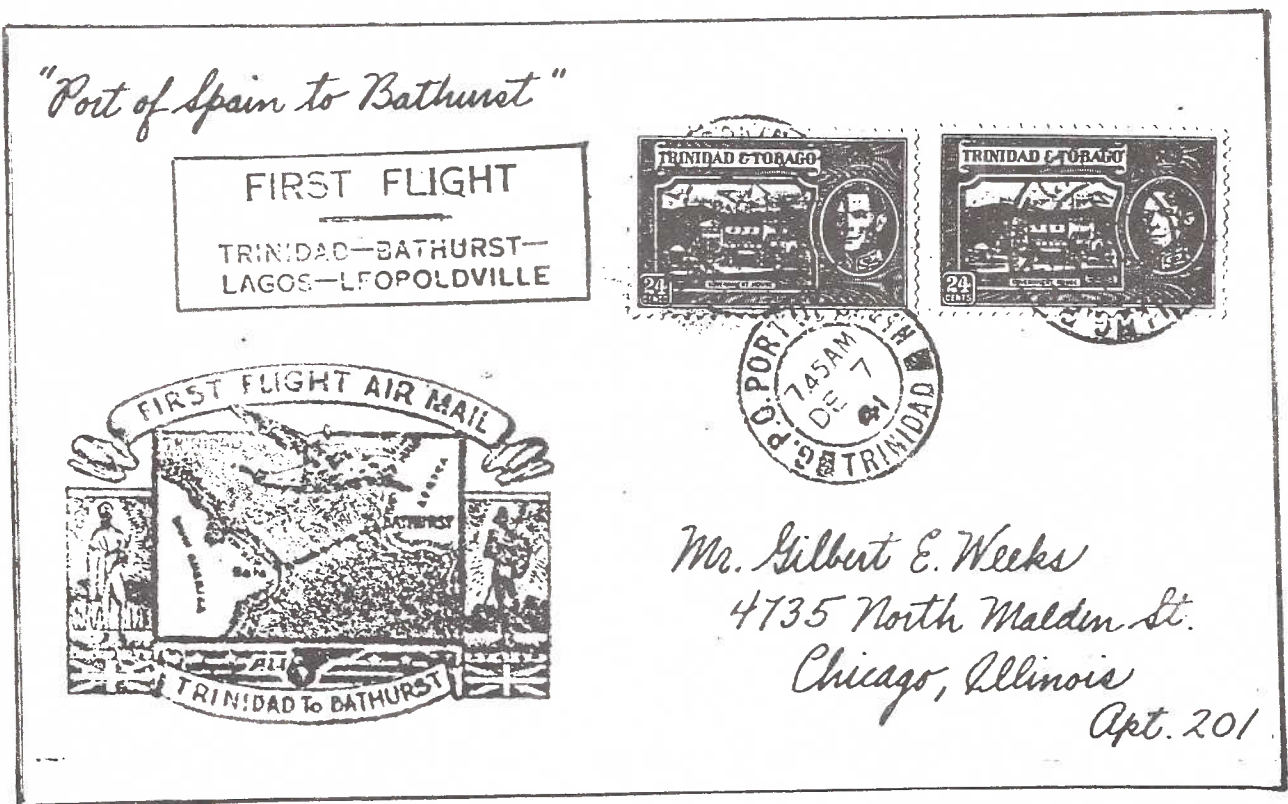 "Port of Spain to Bathurst"
FIRST FLIGHT
TRINIDAD—BATHURST—
LAGOS—LEOPOLDVILLE
TRINIDAD & TOBAGO
24
CENTS
GOVERNMENT HOUSE
TRINIDAD & TOBAGO
24
CENTS
GOVERNMENT HOUSE
G.P.O. PORT OF SPAIN
7.45AM
DE 7
41
TRINIDAD
FIRST FLIGHT AIR MAIL
TRINIDAD
AFRICA
BATHURST
SOUTH AMERICA
TRINIDAD To BATHURST
Mr. Gilbert E. Weeks
4735 North Malden St.
Chicago, Illinois
Apt. 201